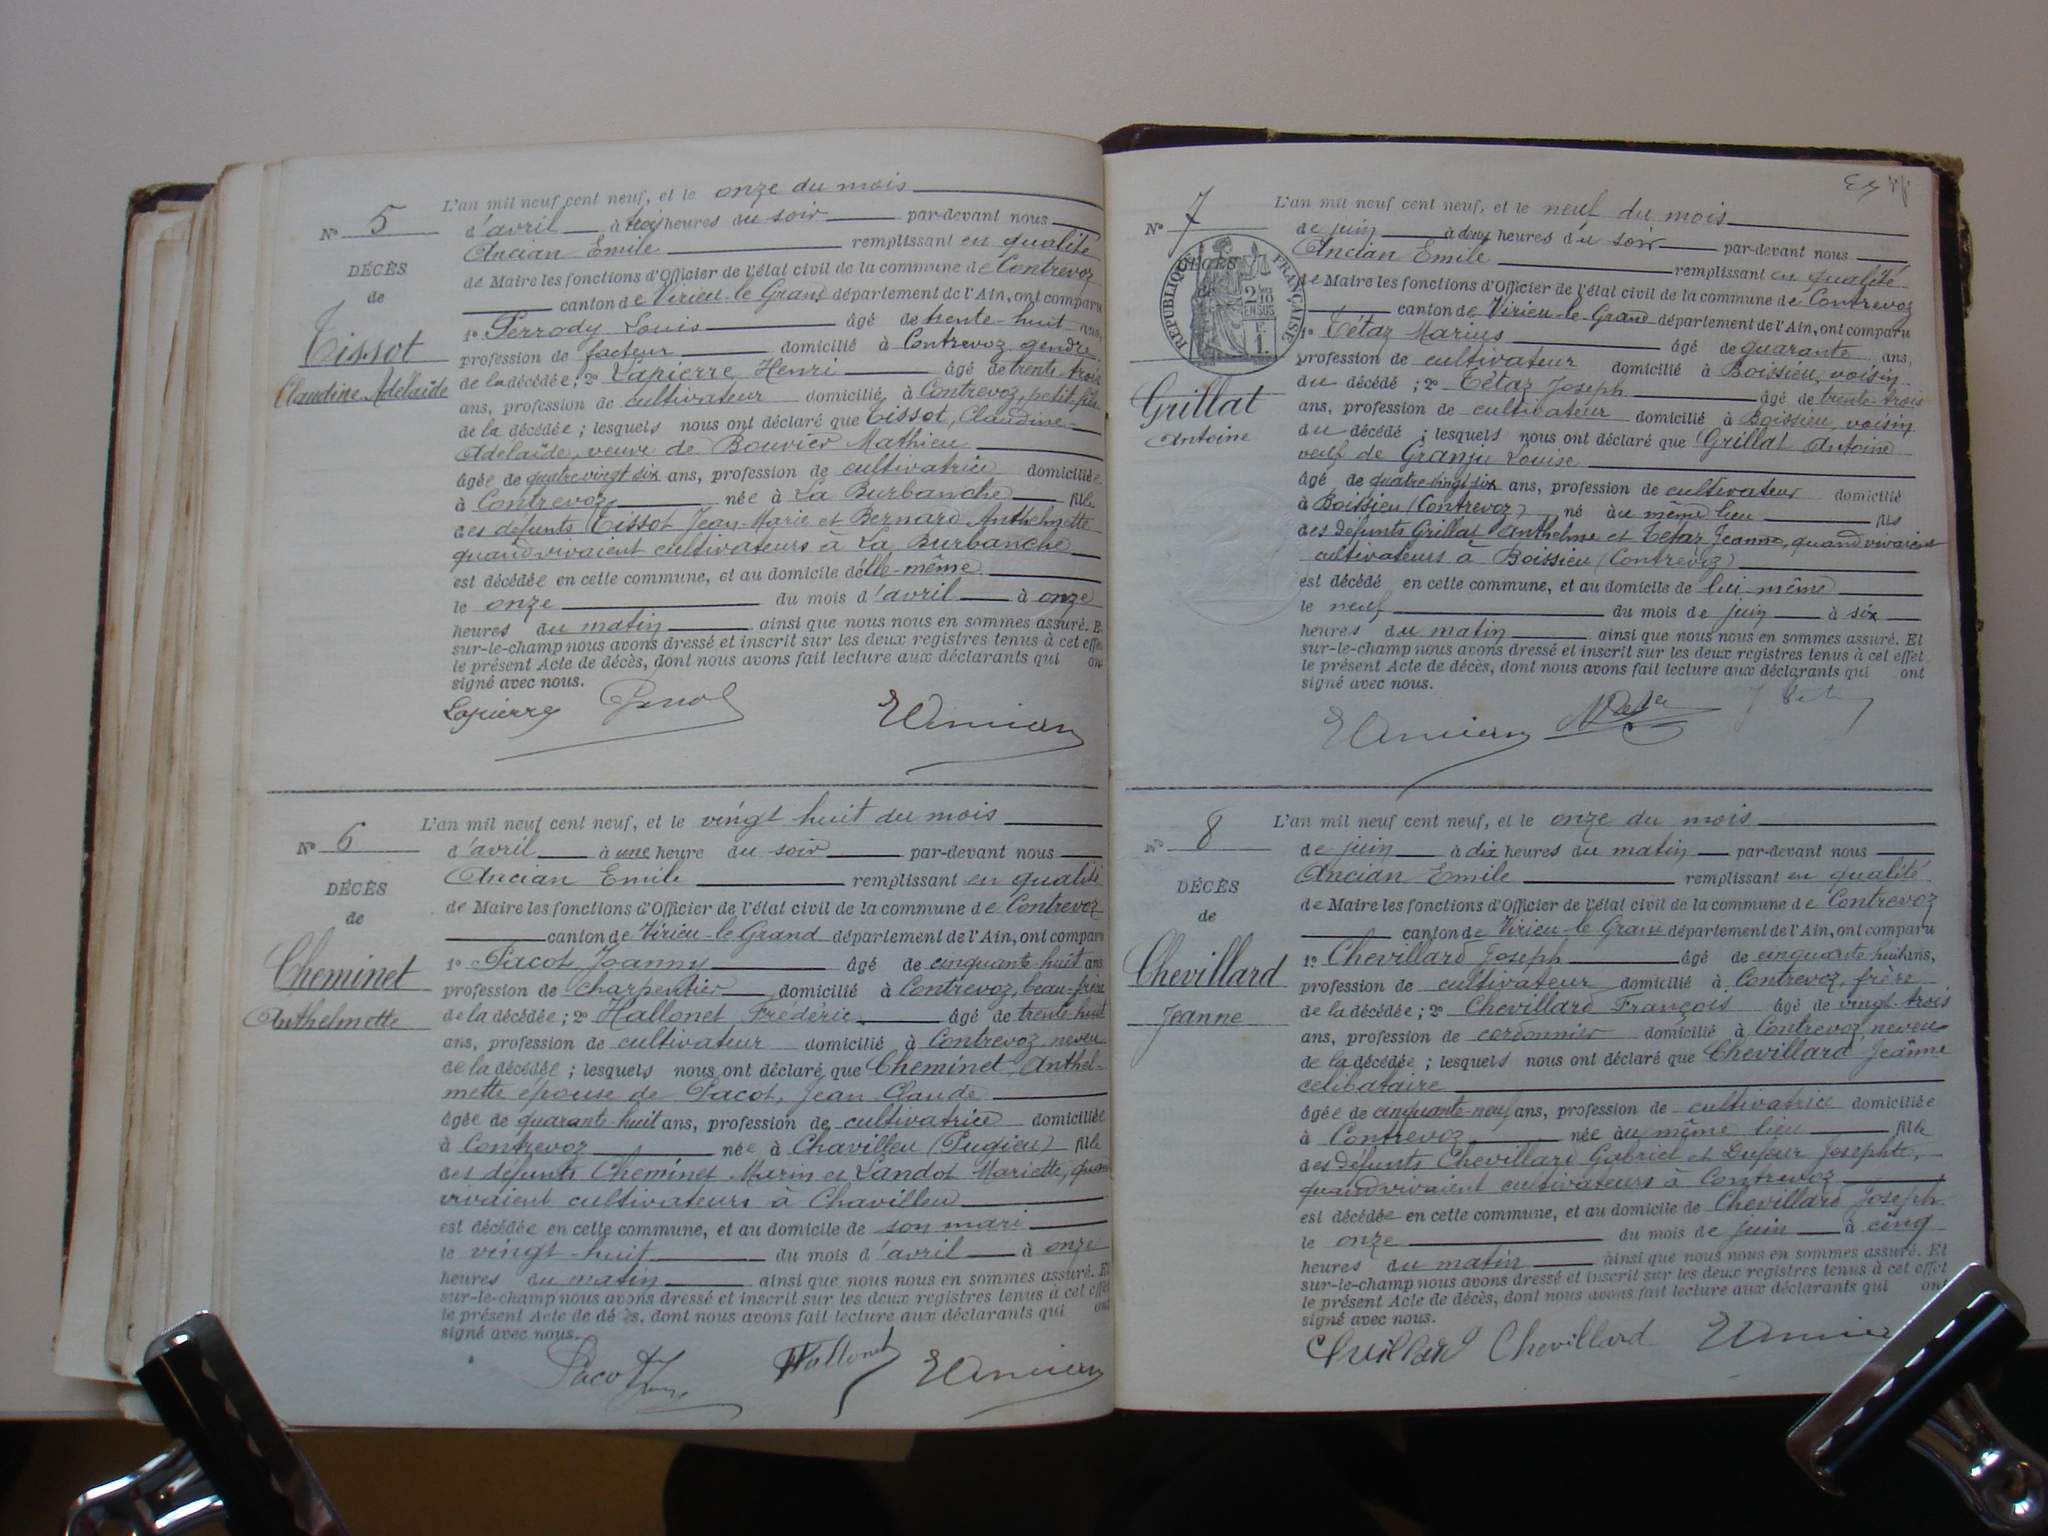 L'an mil neuf cent neuf, et le onze du mois
N° 5
d'avril à trois heures du soir par-devant nous
Ancian Emile remplissant en qualité
DÉCÈS
de Maire les fonctions d'Officier de l'état civil de la commune de Contrevoz
de
canton de Virieu-le-Grand département de l'Ain, ont comparu
1° Perrody Louis âgé de trente-huit ans,
Tissot
profession de facteur domicilié à Contrevoz, gendre
Claudine Adélaïde
de la décédée ; 2° Lapierre Henri âgé de trente trois
ans, profession de cultivateur domicilié à Contrevoz, petit fils
de la décédée ; lesquels nous ont déclaré que Tissot, Claudine
Adélaïde, veuve de Bouvier Mathieu
âgée de quatre vingt six ans, profession de cultivatrice domiciliée
à Contrevoz née à La Burbanche fille
des défunts Tissot Jean-Marie et Bernard Anthelmette
quand vivaient cultivateurs à La Burbanche
est décédée en cette commune, et au domicile d'elle-même
le onze du mois d'avril à onze
heures du matin ainsi que nous nous en sommes assuré. Et
sur-le-champ nous avons dressé et inscrit sur les deux registres tenus à cet effet
le présent Acte de décès, dont nous avons fait lecture aux déclarants qui ont
signé avec nous.
Lapierre EAncian
L'an mil neuf cent neuf, et le vingt huit du mois
N° 6
d'avril à une heure du soir par-devant nous
Ancian Emile remplissant en qualité
DÉCÈS
de Maire les fonctions d'Officier de l'état civil de la commune de Contrevoz
de
canton de Virieu-le-Grand département de l'Ain, ont comparu
Cheminet
1° Pacot Joanny âgé de cinquante huit ans
profession de charpentier domicilié à Contrevoz, beau-frère
Anthelmette
de la décédée ; 2° Hallonet Frédéric âgé de trente huit
ans, profession de cultivateur domicilié à Contrevoz, neveu
de la décédée ; lesquels nous ont déclaré que Cheminet, Anthel-
mette épouse de Pacot, Jean Claude
âgée de quarante-huit ans, profession de cultivatrice domiciliée
à Contrevoz née à Chavilleu (Pugieu) fille
des défunts Cheminet Marin et Landot Mariette, quand
vivaient cultivateurs à Chavilleu
est décédée en cette commune, et au domicile de son mari
le vingt-huit du mois d'avril à onze
heures du matin ainsi que nous nous en sommes assuré. Et
sur-le-champ nous avons dressé et inscrit sur les deux registres tenus à cet effet
le présent Acte de décès, dont nous avons fait lecture aux déclarants qui ont
signé avec nous.
Pacot Hallonet EAncian
L'an mil neuf cent neuf, et le neuf du mois
N° 7
de juin à deux heures du soir par-devant nous
Ancian Emile remplissant en qualité
DÉCÈS
RÉPUBLIQUE FRANÇAISE
2/10 EN SUS
F. 1.
de Maire les fonctions d'Officier de l'état civil de la commune de Contrevoz
canton de Virieu-le-Grand département de l'Ain, ont comparu
1° Tétaz Marius âgé de quarante ans,
profession de cultivateur domicilié à Boissieu, voisin
Grillat
du décédé ; 2° Tétaz Joseph âgé de trente-trois
ans, profession de cultivateur domicilié à Boissieu, voisin
Antoine
du décédé ; lesquels nous ont déclaré que Grillat Antoine
veuf de Granju Louise
âgé de quatre-vingt six ans, profession de cultivateur domicilié
à Boissieu (Contrevoz) né au même lieu fils
des défunts Grillat Anthelme et Tétaz Jeanne, quand vivaient
cultivateurs à Boissieu (Contrevoz)
est décédé en cette commune, et au domicile de lui même
le neuf du mois de juin à six
heures du matin ainsi que nous nous en sommes assuré. Et
sur-le-champ nous avons dressé et inscrit sur les deux registres tenus à cet effet
le présent Acte de décès, dont nous avons fait lecture aux déclarants qui ont
signé avec nous.
EAncian
L'an mil neuf cent neuf, et le onze du mois
N° 8
de juin à dix heures du matin par-devant nous
Ancian Emile remplissant en qualité
DÉCÈS
de Maire les fonctions d'Officier de l'état civil de la commune de Contrevoz
de
canton de Virieu-le-Grand département de l'Ain, ont comparu
Chevillard
1° Chevillard Joseph âgé de cinquante huit ans,
profession de cultivateur domicilié à Contrevoz, frère
Jeanne
de la décédée ; 2° Chevillard François âgé de vingt-trois
ans, profession de cordonnier domicilié à Contrevoz, neveu
de la décédée ; lesquels nous ont déclaré que Chevillard Jeanne
célibataire
âgée de cinquante-neuf ans, profession de cultivatrice domiciliée
à Contrevoz née au même lieu fille
des défunts Chevillard Gabriel et Dufour Josephte,
quand vivaient cultivateurs à Contrevoz
est décédée en cette commune, et au domicile de Chevillard Joseph
le onze du mois de juin à cinq
heures du matin ainsi que nous nous en sommes assuré. Et
sur-le-champ nous avons dressé et inscrit sur les deux registres tenus à cet effet
le présent Acte de décès, dont nous avons fait lecture aux déclarants qui ont
signé avec nous.
Chevillard Chevillard EAncian